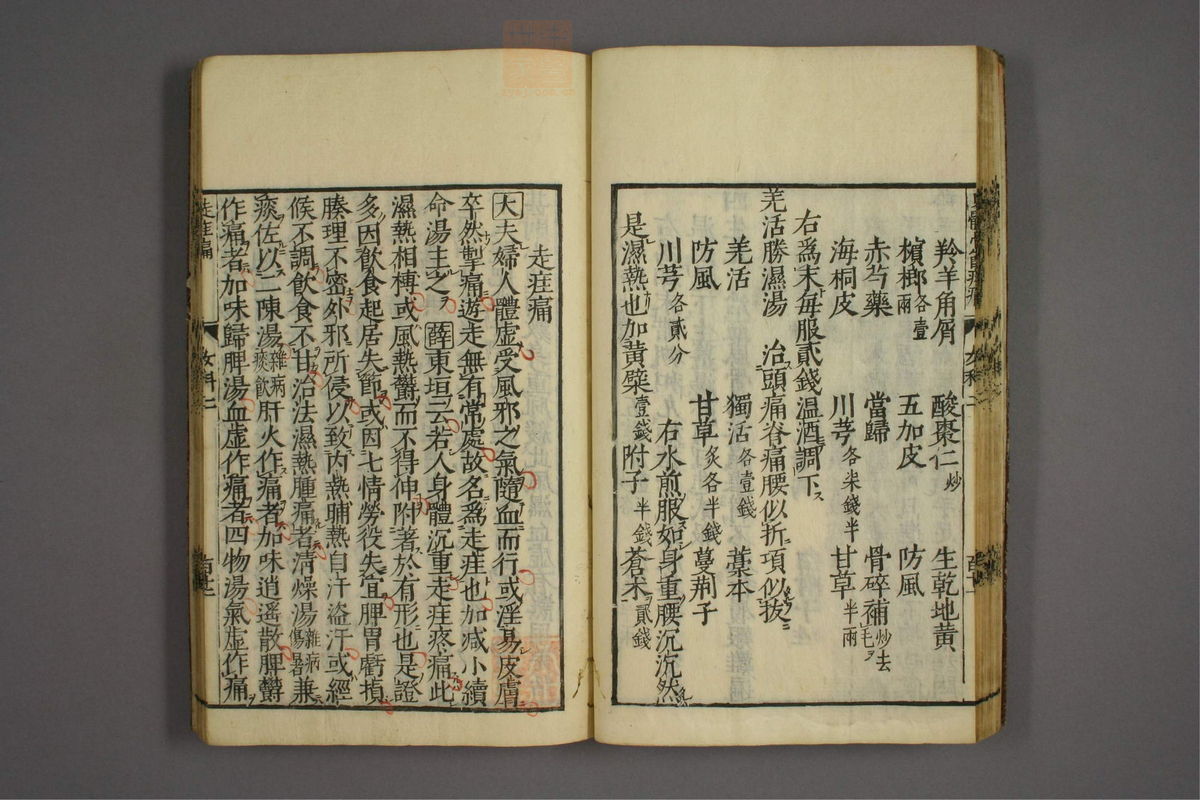 羚羊角屑 酸棗仁炒 生乾地黃
檳榔各壹兩 五加皮 防風
赤芍藥 當歸 骨碎補炒去毛
海桐皮 川芎各柒錢半 甘草半兩
右爲末每服貳錢温酒調下
羌活勝濕湯 治頭痛脊痛腰似折項似拔
羌活 獨活各壹錢 藁本
防風 甘草炙各半錢 蔓荆子
川芎各貳分 右水煎服如身重腰沉沉然
是濕熱也加黃檗壹錢附子半錢蒼朮貳錢
走疰痛
大夫婦人體虚受風邪之氣隨血而行或淫易皮膚
卒然掣痛遊走無有常處故名爲走疰也加減小續
命湯主之 薛東垣云若人身體沉重走疰疼痛此
濕熱相搏或風熱欝而不得伸附著於有形也是證
多因飲食起居失節或因七情勞役失宜脾胃虧損
腠理不密外邪所侵以致内熱晡熱自汗盜汗或經
候不調飲食不甘治法濕熱腫痛者清燥湯雜病傷暑兼
痰佐以二陳湯雜病痰飲肝火作痛者加味逍遥散脾欝
作痛者加味歸脾湯血虚作痛者四物湯氣虚作痛
走疰痛 女科二
女科二